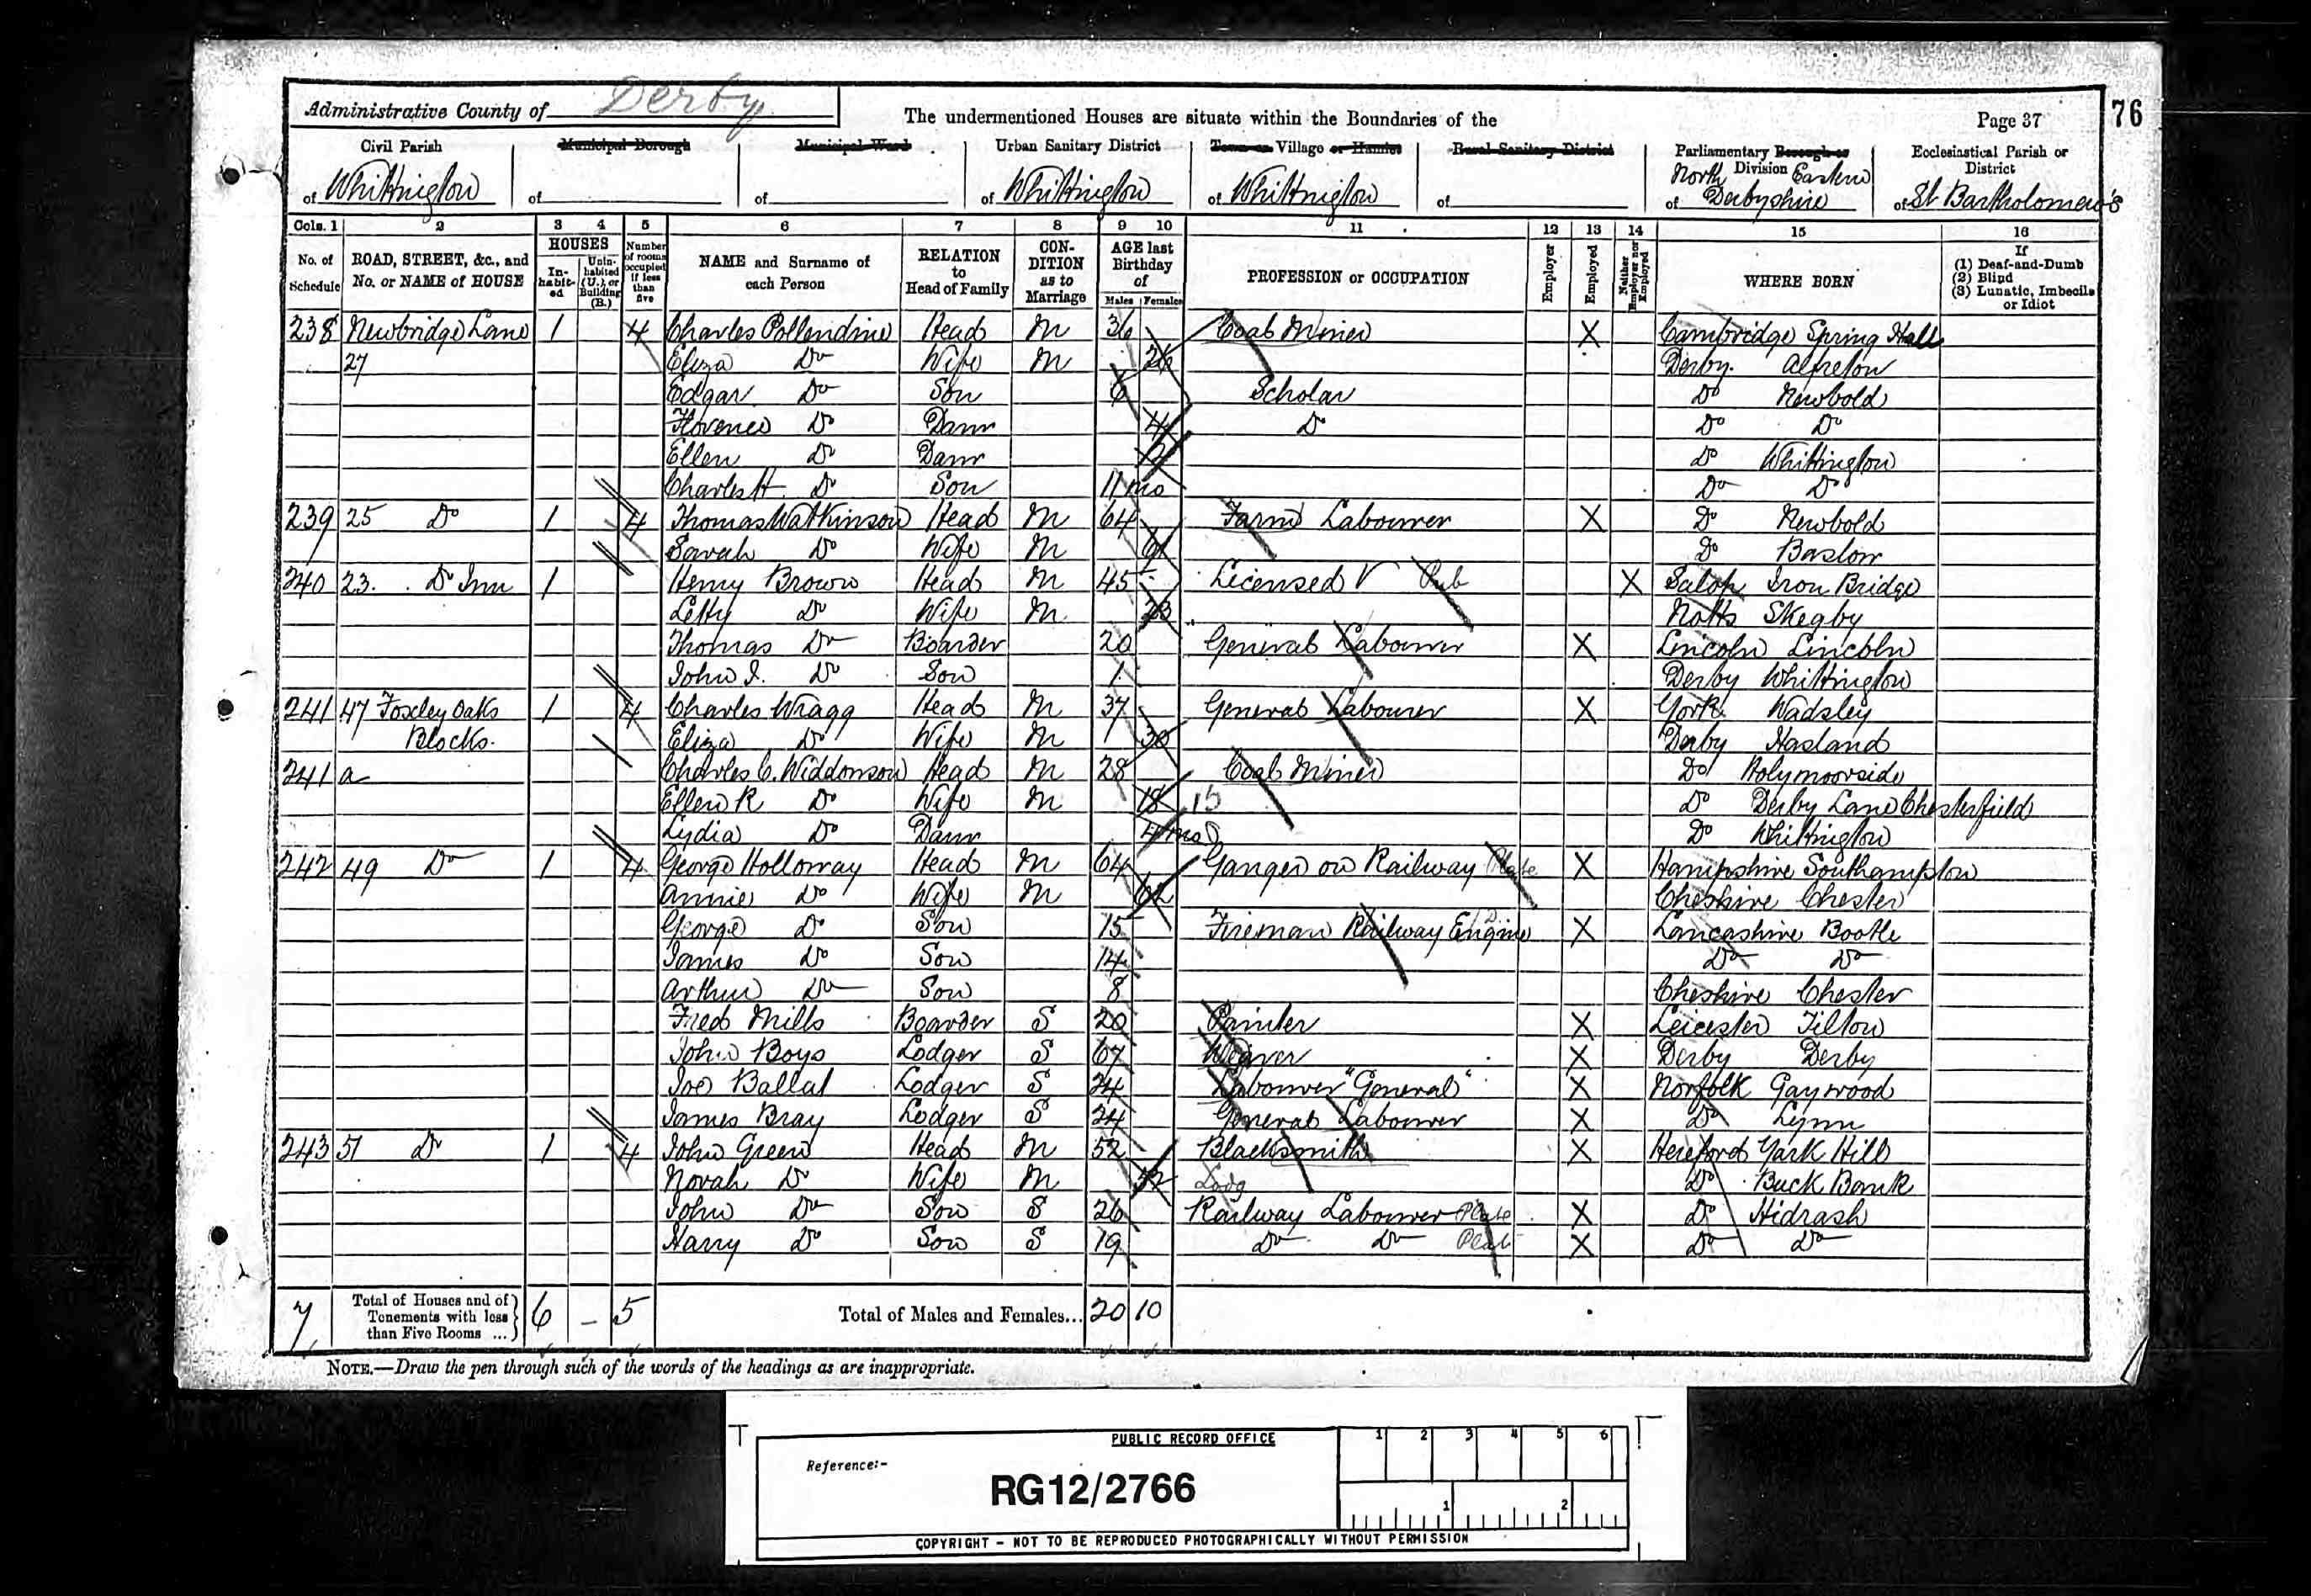 Administrative County of Derby
The undermentioned Houses are situate within the Boundaries of the
Page 37
76
Civil Parish of Whittington
Municipal Borough of
Municipal Ward of
Urban Sanitary District of Whittington
Town or Village or Hamlet of Whittington
Rural Sanitary District of
Parliamentary Borough or Division of North Eastern Derbyshire
Ecclesiastical Parish or District of St Bartholomew's
Cols. 1 2 3 4 5 6 7 8 9 10 11 12 13 14 15 16
No. of Schedule
ROAD, STREET, &c., and No. or NAME of HOUSE
HOUSES
Inhabited
Uninhabited (U.), or Building (B.)
Number of rooms occupied if less than five
NAME and Surname of each Person
RELATION to Head of Family
CONDITION as to Marriage
AGE last Birthday of
Males Females
PROFESSION or OCCUPATION
Employer
Employed
Neither Employer nor Employed
WHERE BORN
If (1) Deaf-and-Dumb (2) Blind (3) Lunatic, Imbecile or Idiot
238 Newbridge Lane 1 4 Charles Pollendine Head M 36 Coal Miner X Cambridge Spring Hall
27 Eliza Do Wife M 26 Derby Alfreton
Edgar Do Son 6 Scholar Do Newbold
Florence Do Daur 4 Do Do Do
Ellen Do Daur 2 Do Whittington
Charles H Do Son 11 mo Do Do
239 25 Do 1 4 Thomas Watkinson Head M 64 Farm Labourer X Do Newbold
Sarah Do Wife M Do Baslow
240 23. Do Inn 1 Henry Brown Head M 45 Licensed V Pub X Salop Iron Bridge
Letty Do Wife M Notts Skegby
Thomas Do Boarder 20 General Labourer X Lincoln Lincoln
John I. Do Son 1 Derby Whittington
241 47 Foxley Oaks 1 4 Charles Wragg Head M 37 General Labourer X York Wadsley
Blocks. Eliza Do Wife M 30 Derby Hasland
241 a Charles C. Widdowson Head M 28 Coal Miner Do Holymoorside
Ellen R Do Wife M 18 Do Derby Lane Chesterfield
Lydia Do Daur 4 mo Do Whittington
242 49 Do 1 4 George Holloway Head M 64 Ganger on Railway Plate X Hampshire Southampton
Annie Do Wife M 62 Cheshire Chester
George Do Son 15 Fireman Railway Engine X Lancashire Bootle
James Do Son 14 Do Do
Arthur Do Son 8 Cheshire Chester
Fred Mills Boarder S 20 Painter X Leicester Tilton
John Boys Lodger S 67 Weaver X Derby Derby
Joe Ballat Lodger S 24 Labourer "General" X Norfolk Gaywood
James Bray Lodger S 24 General Labourer X Do Lynn
243 51 Do 1 4 John Green Head M 52 Blacksmith X Hereford Yark Hill
Norah Do Wife M 52 Lodg Do Buck Bank
John Do Son S 26 Railway Labourer Plate X Do Hidrash
Harry Do Son S 19 Do Do Plat X Do Do
7 Total of Houses and of Tenements with less than Five Rooms ... 6 – 5 Total of Males and Females... 20 10
NOTE.—Draw the pen through such of the words of the headings as are inappropriate.
PUBLIC RECORD OFFICE
1 2 3 4 5 6
Reference:-
RG12/2766
1 2
COPYRIGHT - NOT TO BE REPRODUCED PHOTOGRAPHICALLY WITHOUT PERMISSION